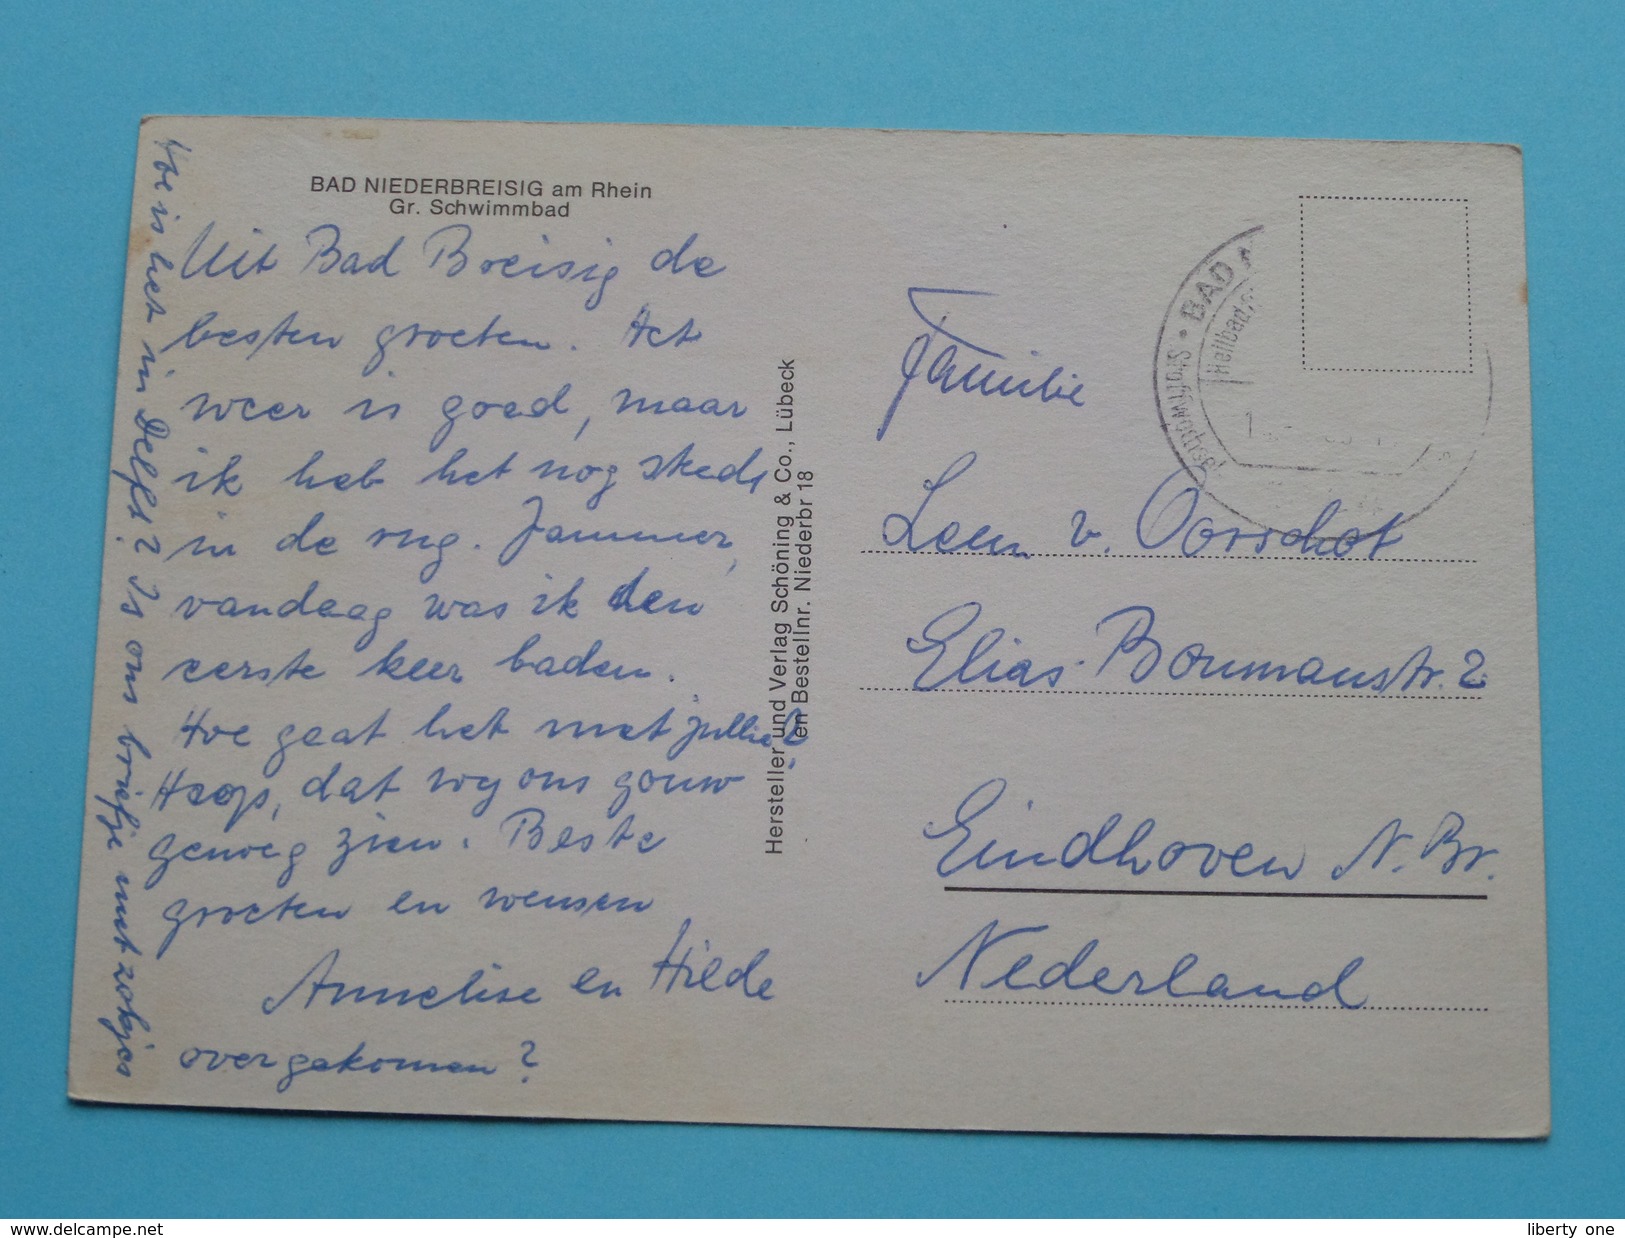 BAD NIEDERBREISIG am Rhein
Gr. Schwimmbad
Uit Bad Breisig de
besten groeten. Het
weer is goed, maar
ik heb het nog steeds
in de rug. Jammer,
vandaag was ik den
eerste keer baden.
Hoe gaat het met jullie?
Hoop, dat wy ons gouw
genoeg zien. Beste
groeten en wensen
Annelise en Hilde
Hoe is het in Delft? Is ons briefje met zokjes
overgekomen?
Hersteller und Verlag Schöning & Co., Lübeck
en Bestellnr. Niederbr 18
BAD
Heilbad
Familie
Leen v. Oorschot
Elias-Boumanstr. 2
Eindhoven N. Br.
Nederland
www.delcampe.net
liberty_one